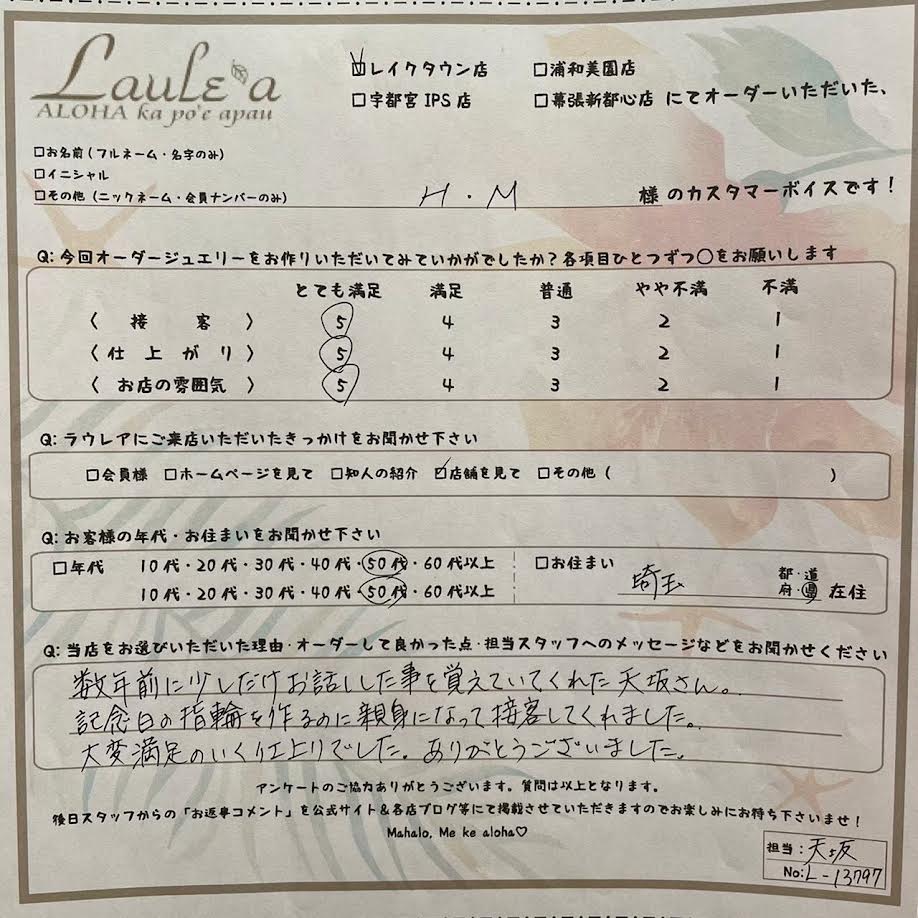 Laule'a
ALOHA ka po'e apau
☑レイクタウン店 □浦和美園店
□宇都宮IPS店 □幕張新都心店 にてオーダーいただいた、
□お名前(フルネーム・名字のみ)
□イニシャル
□その他(ニックネーム・会員ナンバーのみ) H・M 様のカスタマーボイスです!
Q:今回オーダージュエリーをお作りいただいてみていかがでしたか?各項目ひとつずつ○をお願いします
とても満足 満足 普通 やや不満 不満
〈 接 客 〉 5 4 3 2 1
〈 仕 上 が り 〉 5 4 3 2 1
〈 お店の雰囲気 〉 5 4 3 2 1
Q:ラウレアにご来店いただいたきっかけをお聞かせ下さい
□会員様 □ホームページを見て □知人の紹介 ☑店舗を見て □その他( )
Q:お客様の年代・お住まいをお聞かせ下さい
□年代 10代・20代・30代・40代・50代・60代以上 □お住まい 埼玉 都・道
10代・20代・30代・40代・50代・60代以上 府・県 在住
Q:当店をお選びいただいた理由・オーダーして良かった点・担当スタッフへのメッセージなどをお聞かせください
数年前に少しだけお話しした事を覚えていてくれた天坂さん。
記念日の指輪を作るのに親身になって接客してくれました。
大変満足のいく仕上りでした。ありがとうございました。
アンケートのご協力ありがとうございます。質問は以上となります。
後日スタッフからの「お返事コメント」を公式サイト&各店ブログ等にて掲載させていただきますのでお楽しみにお待ち下さいませ!
Mahalo, Me ke aloha♡
担当:天坂
No:L-13797